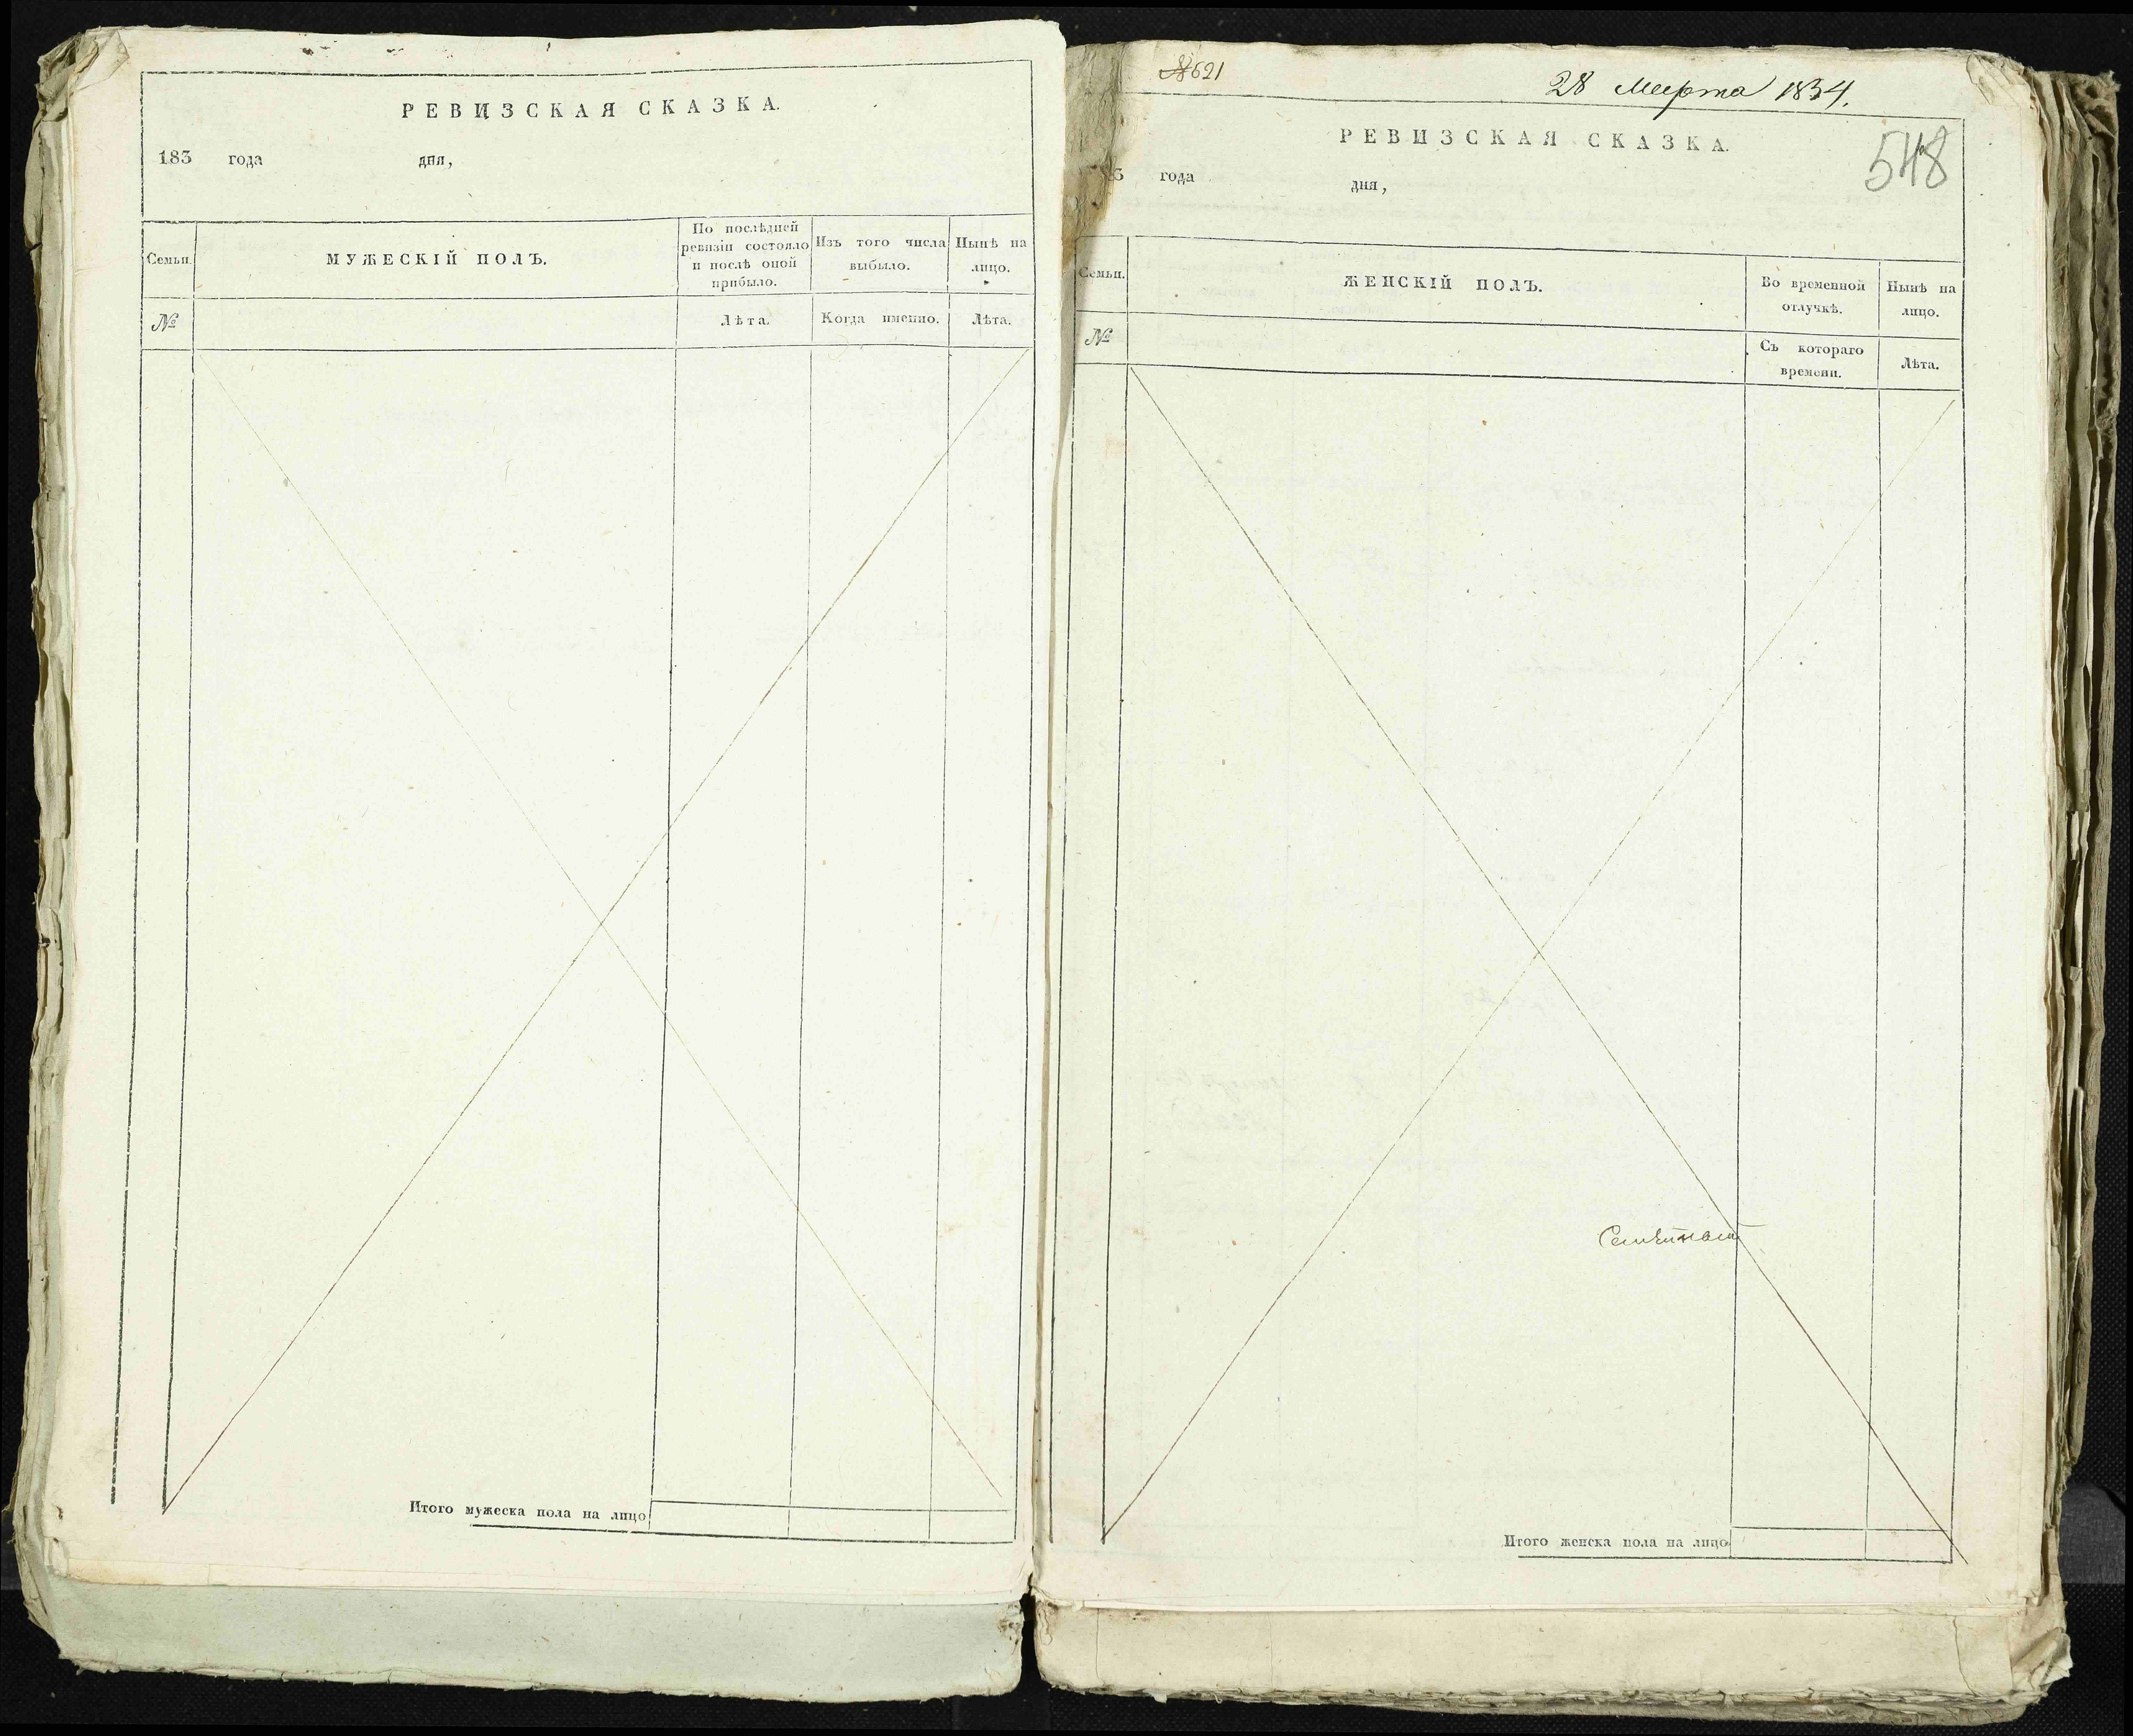 РЕВИЗСКАЯ СКАЗКА.
183 года дня,
Семьи.
МУЖЕСКІЙ ПОЛЪ.
По послѣдней
ревизіи состояло
и послѣ оной
прибыло.
Изъ того числа
выбыло.
Нынѣ на
лицо.
№
Лѣта.
Когда именно.
Лѣта.
Итого мужеска пола на лицо
№621
28 Марта 1834.
548
РЕВИЗСКАЯ СКАЗКА.
83 года дня,
Семьи.
ЖЕНСКІЙ ПОЛЪ.
Во временной
отлучкѣ.
Нынѣ на
лицо.
№
Съ котораго
времени.
Лѣта.
Итого женска пола на лицо